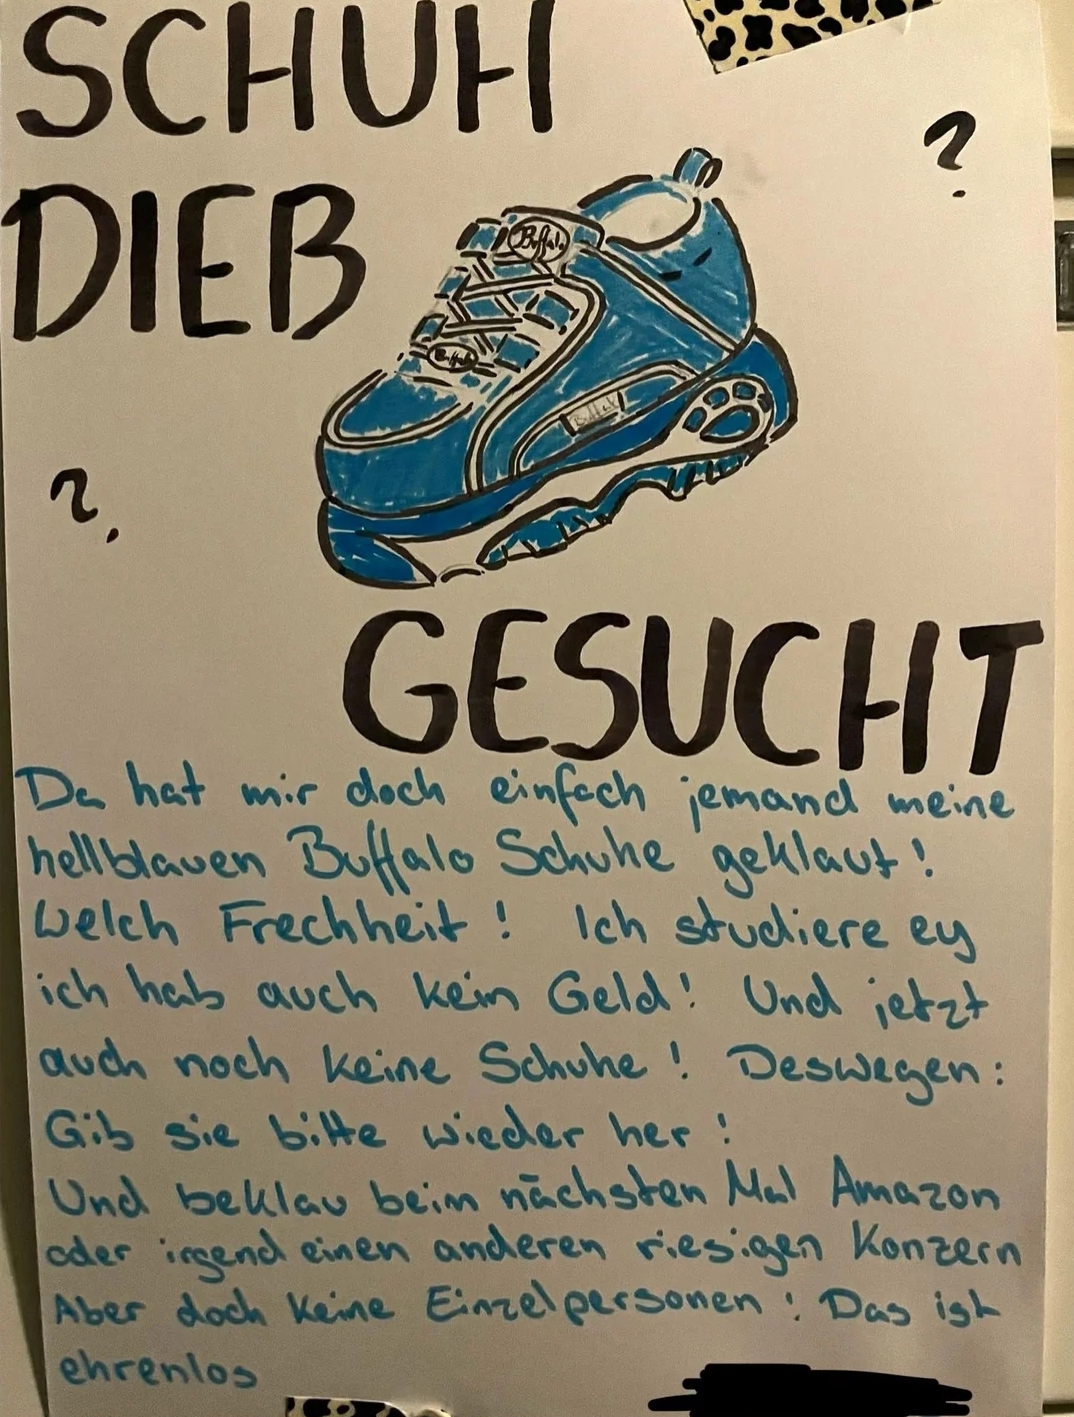 SCHUH
DIEB
?
Buffalo
Buffalo
Buffalo
?
GESUCHT
Da hat mir doch einfach jemand meine
hellblauen Buffalo Schuhe geklaut!
Welch Frechheit! Ich studiere ey
ich hab auch kein Geld! Und jetzt
auch noch keine Schuhe! Deswegen:
Gib sie bitte wieder her!
Und beklau beim nächsten Mal Amazon
oder irgend einen anderen riesigen Konzern
Aber doch keine Einzelpersonen! Das ist
ehrenlos